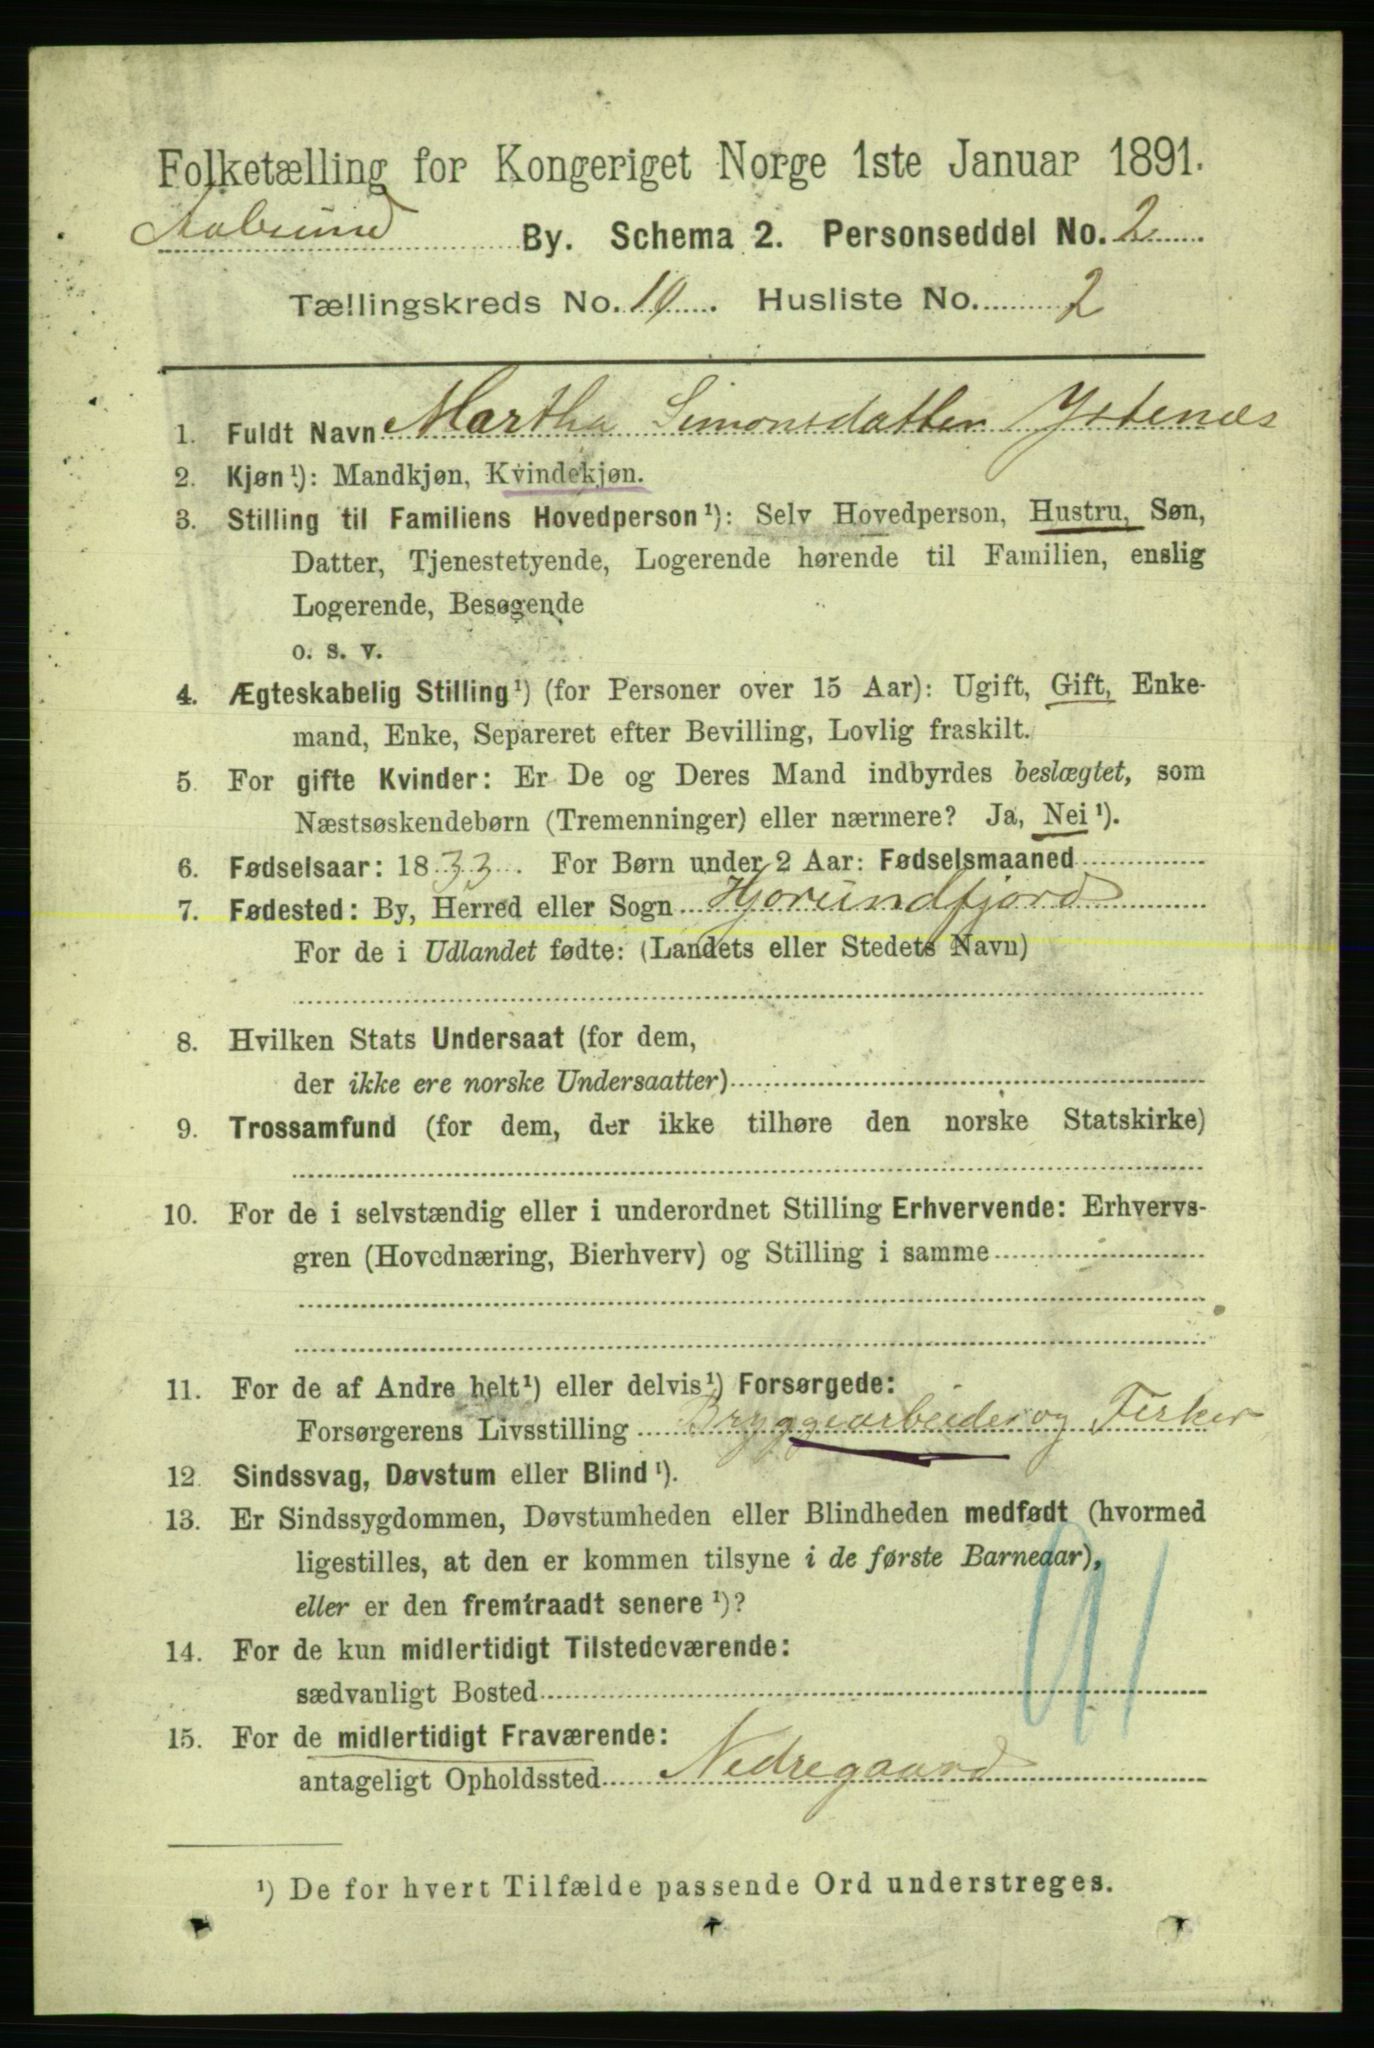 Folketælling for Kongeriget Norge 1ste Januar 1891.
Aalesund By. Schema 2. Personseddel No. 2
Tællingskreds No. 10. Husliste No. 2
1. Fuldt Navn Martha Simonsdatter Ystenæs
2. Kjøn¹): Mandkjøn, Kvindekjøn.
3. Stilling til Familiens Hovedperson¹): Selv Hovedperson, Hustru, Søn,
Datter, Tjenestetyende, Logerende hørende til Familien, enslig
Logerende, Besøgende
o. s. v.
4. Ægteskabelig Stilling¹) (for Personer over 15 Aar): Ugift, Gift, Enke-
mand, Enke, Separeret efter Bevilling, Lovlig fraskilt.
5. For gifte Kvinder: Er De og Deres Mand indbyrdes beslægtet, som
Næstsøskendebørn (Tremenninger) eller nærmere? Ja, Nei¹).
6. Fødselsaar: 1833. For Børn under 2 Aar: Fødselsmaaned
7. Fødested: By, Herred eller Sogn Hjorundfjord
For de i Udlandet fødte: (Landets eller Stedets Navn)
8. Hvilken Stats Undersaat (for dem,
der ikke ere norske Undersaatter)
9. Trossamfund (for dem, der ikke tilhøre den norske Statskirke)
10. For de i selvstændig eller i underordnet Stilling Erhvervende: Erhvervs-
gren (Hovednæring, Bierhverv) og Stilling i samme
11. For de af Andre helt¹) eller delvis¹) Forsørgede:
Forsørgerens Livsstilling Bryggearbeider og Fisker
12. Sindssvag, Døvstum eller Blind¹).
13. Er Sindssygdommen, Døvstumheden eller Blindheden medfødt (hvormed
ligestilles, at den er kommen tilsyne i de første Barneaar),
eller er den fremtraadt senere¹)?
14. For de kun midlertidigt Tilstedeværende:
sædvanligt Bosted
15. For de midlertidigt Fraværende:
antageligt Opholdssted Nedregaard
¹) De for hvert Tilfælde passende Ord understreges.